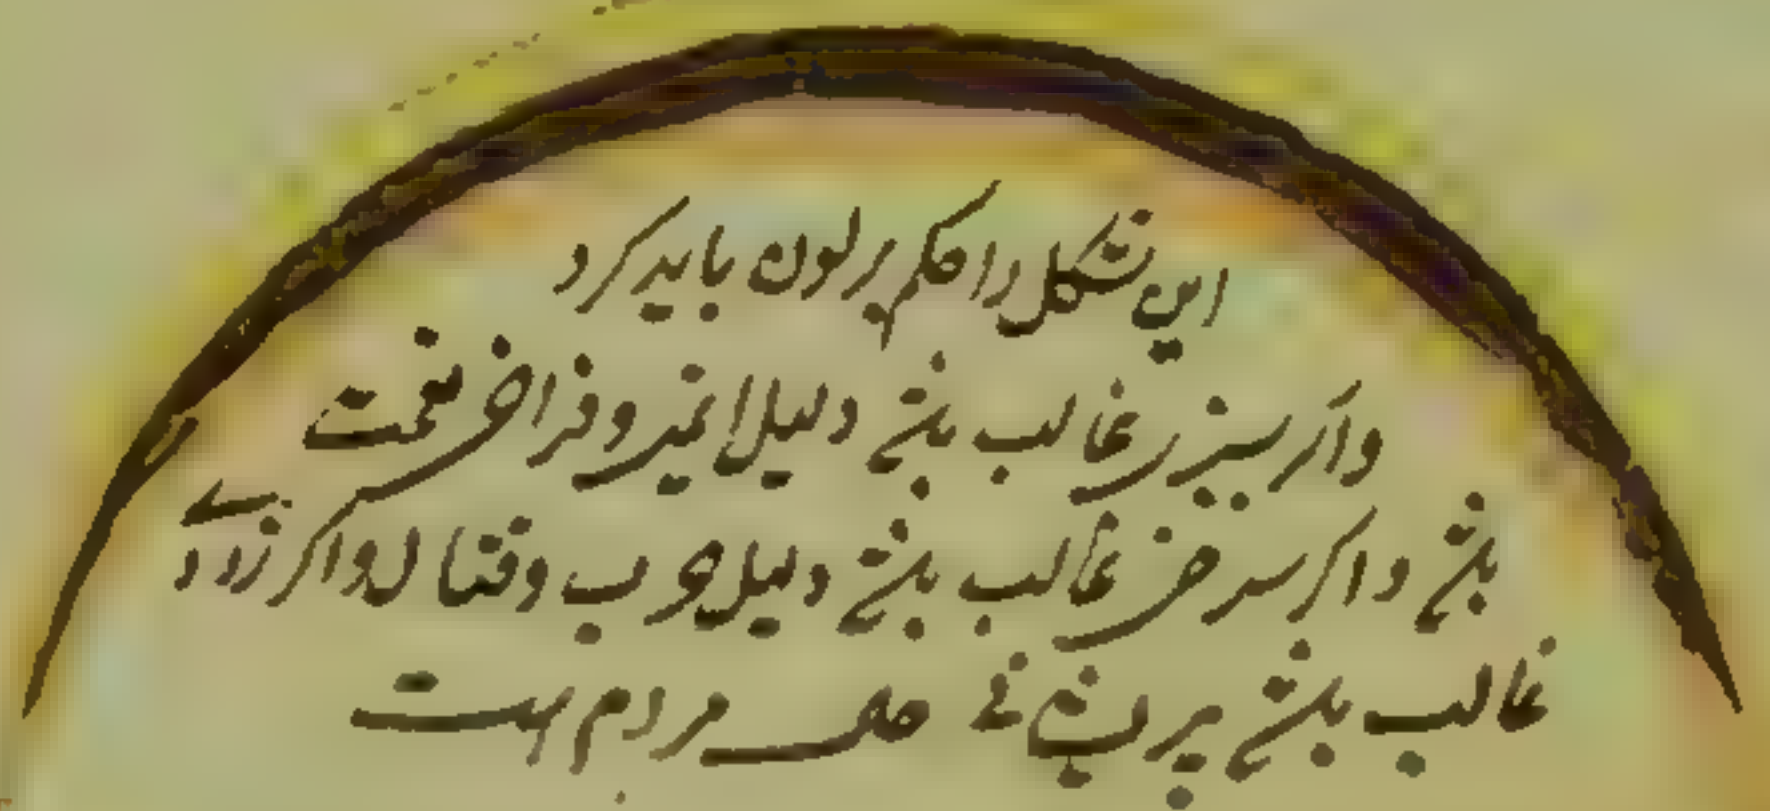 این شکل را حکم بر لون باید کرد
و اگر سبزی غالب باشد دلیل ایمنی و فراخی نعمت
باشد و اگر سرخی غالب باشد دلیل حرب و قتال و اگر زردی
غالب باشد پریشانی حال مردم است